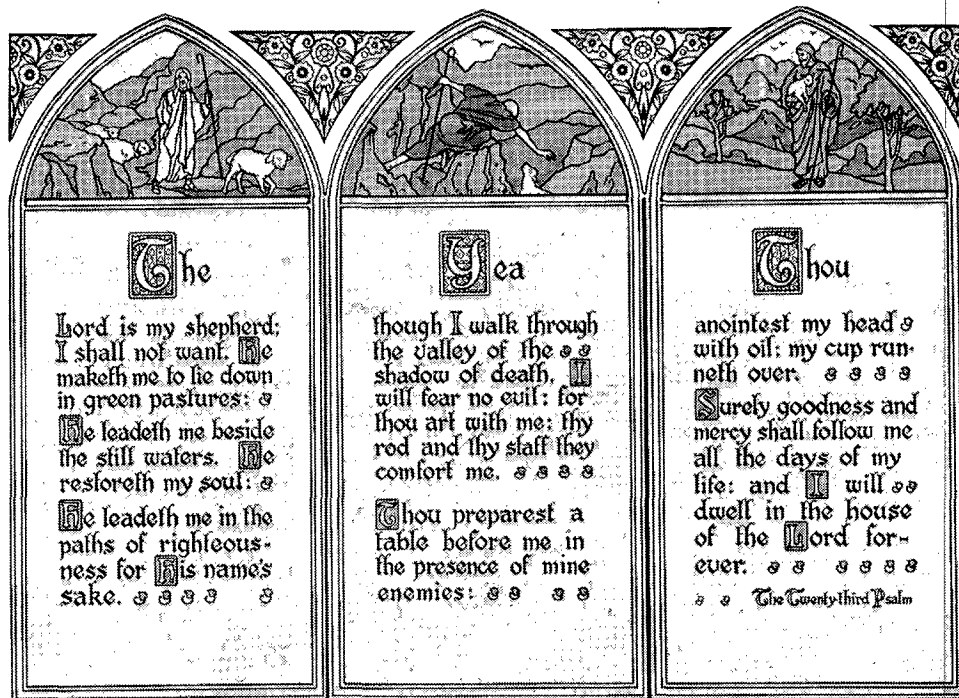 The
Lord is my shepherd;
I shall not want. He
maketh me to lie down
in green pastures:
He leadeth me beside
the still waters. He
restoreth my soul:
He leadeth me in the
paths of righteous-
ness for His name's
sake.
Yea
though I walk through
the valley of the
shadow of death, I
will fear no evil: for
thou art with me: thy
rod and thy staff they
comfort me.
Thou preparest a
table before me in
the presence of mine
enemies:
Thou
anointest my head
with oil: my cup run-
neth over.
Surely goodness and
mercy shall follow me
all the days of my
life: and I will
dwell in the house
of the Lord for-
ever.
The Twenty-third Psalm